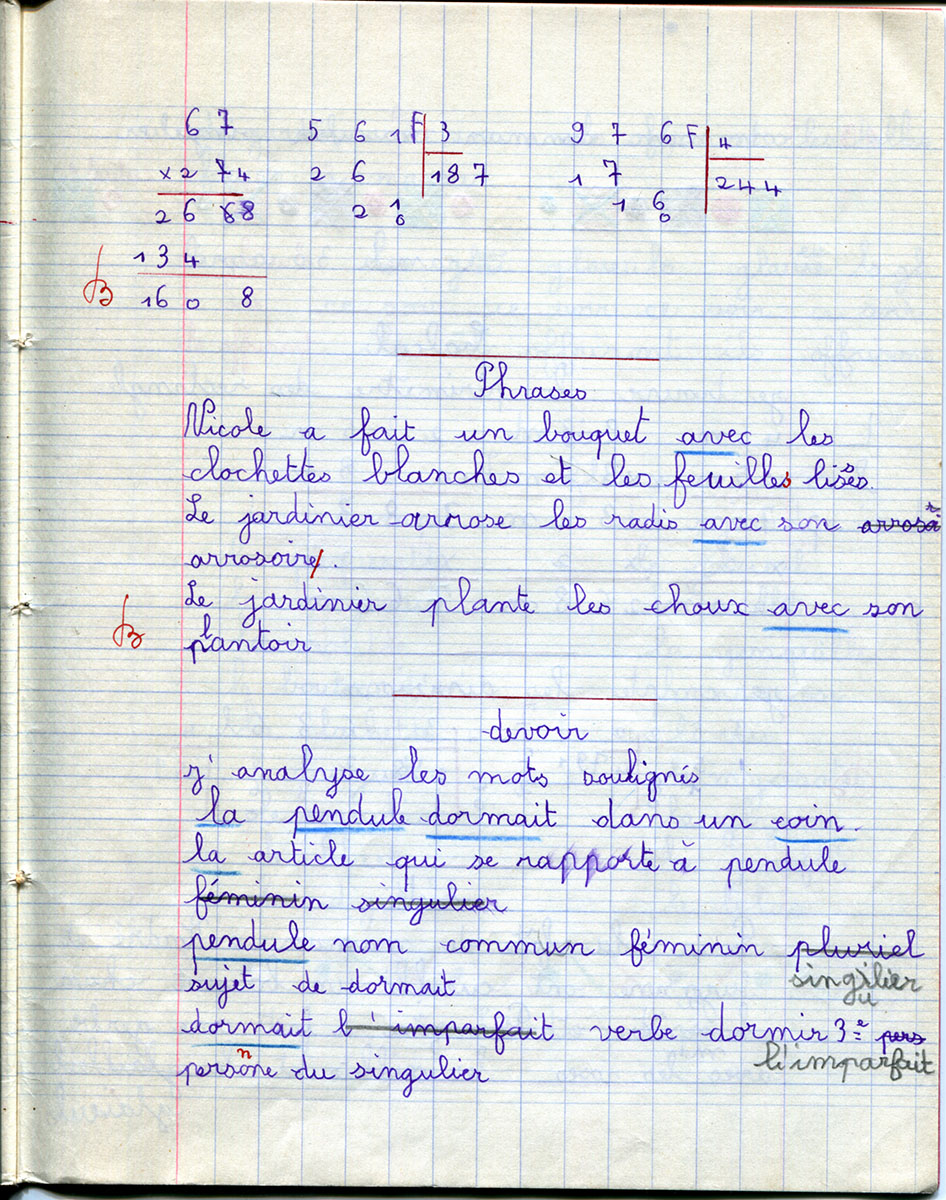 67 561F 3 976F 4
x274 26 187 17 244
2668 21 16
0 0
134
B 1608
Phrases
Nicole a fait un bouquet avec les
clochettes blanches et les feuilles lises.
Le jardinier arrose les radis avec son arrosa
arrosoire.
Le jardinier plante les choux avec son
B plantoir
devoir
j'analyse les mots soulignés
la pendule dormait dans un coin.
la article qui se rapporte à pendule
féminin singulier
pendule nom commun féminin pluriel
singulier
sujet de dormait
dormait l'imparfait verbe dormir 3e pers
l'imparfait
personne du singulier